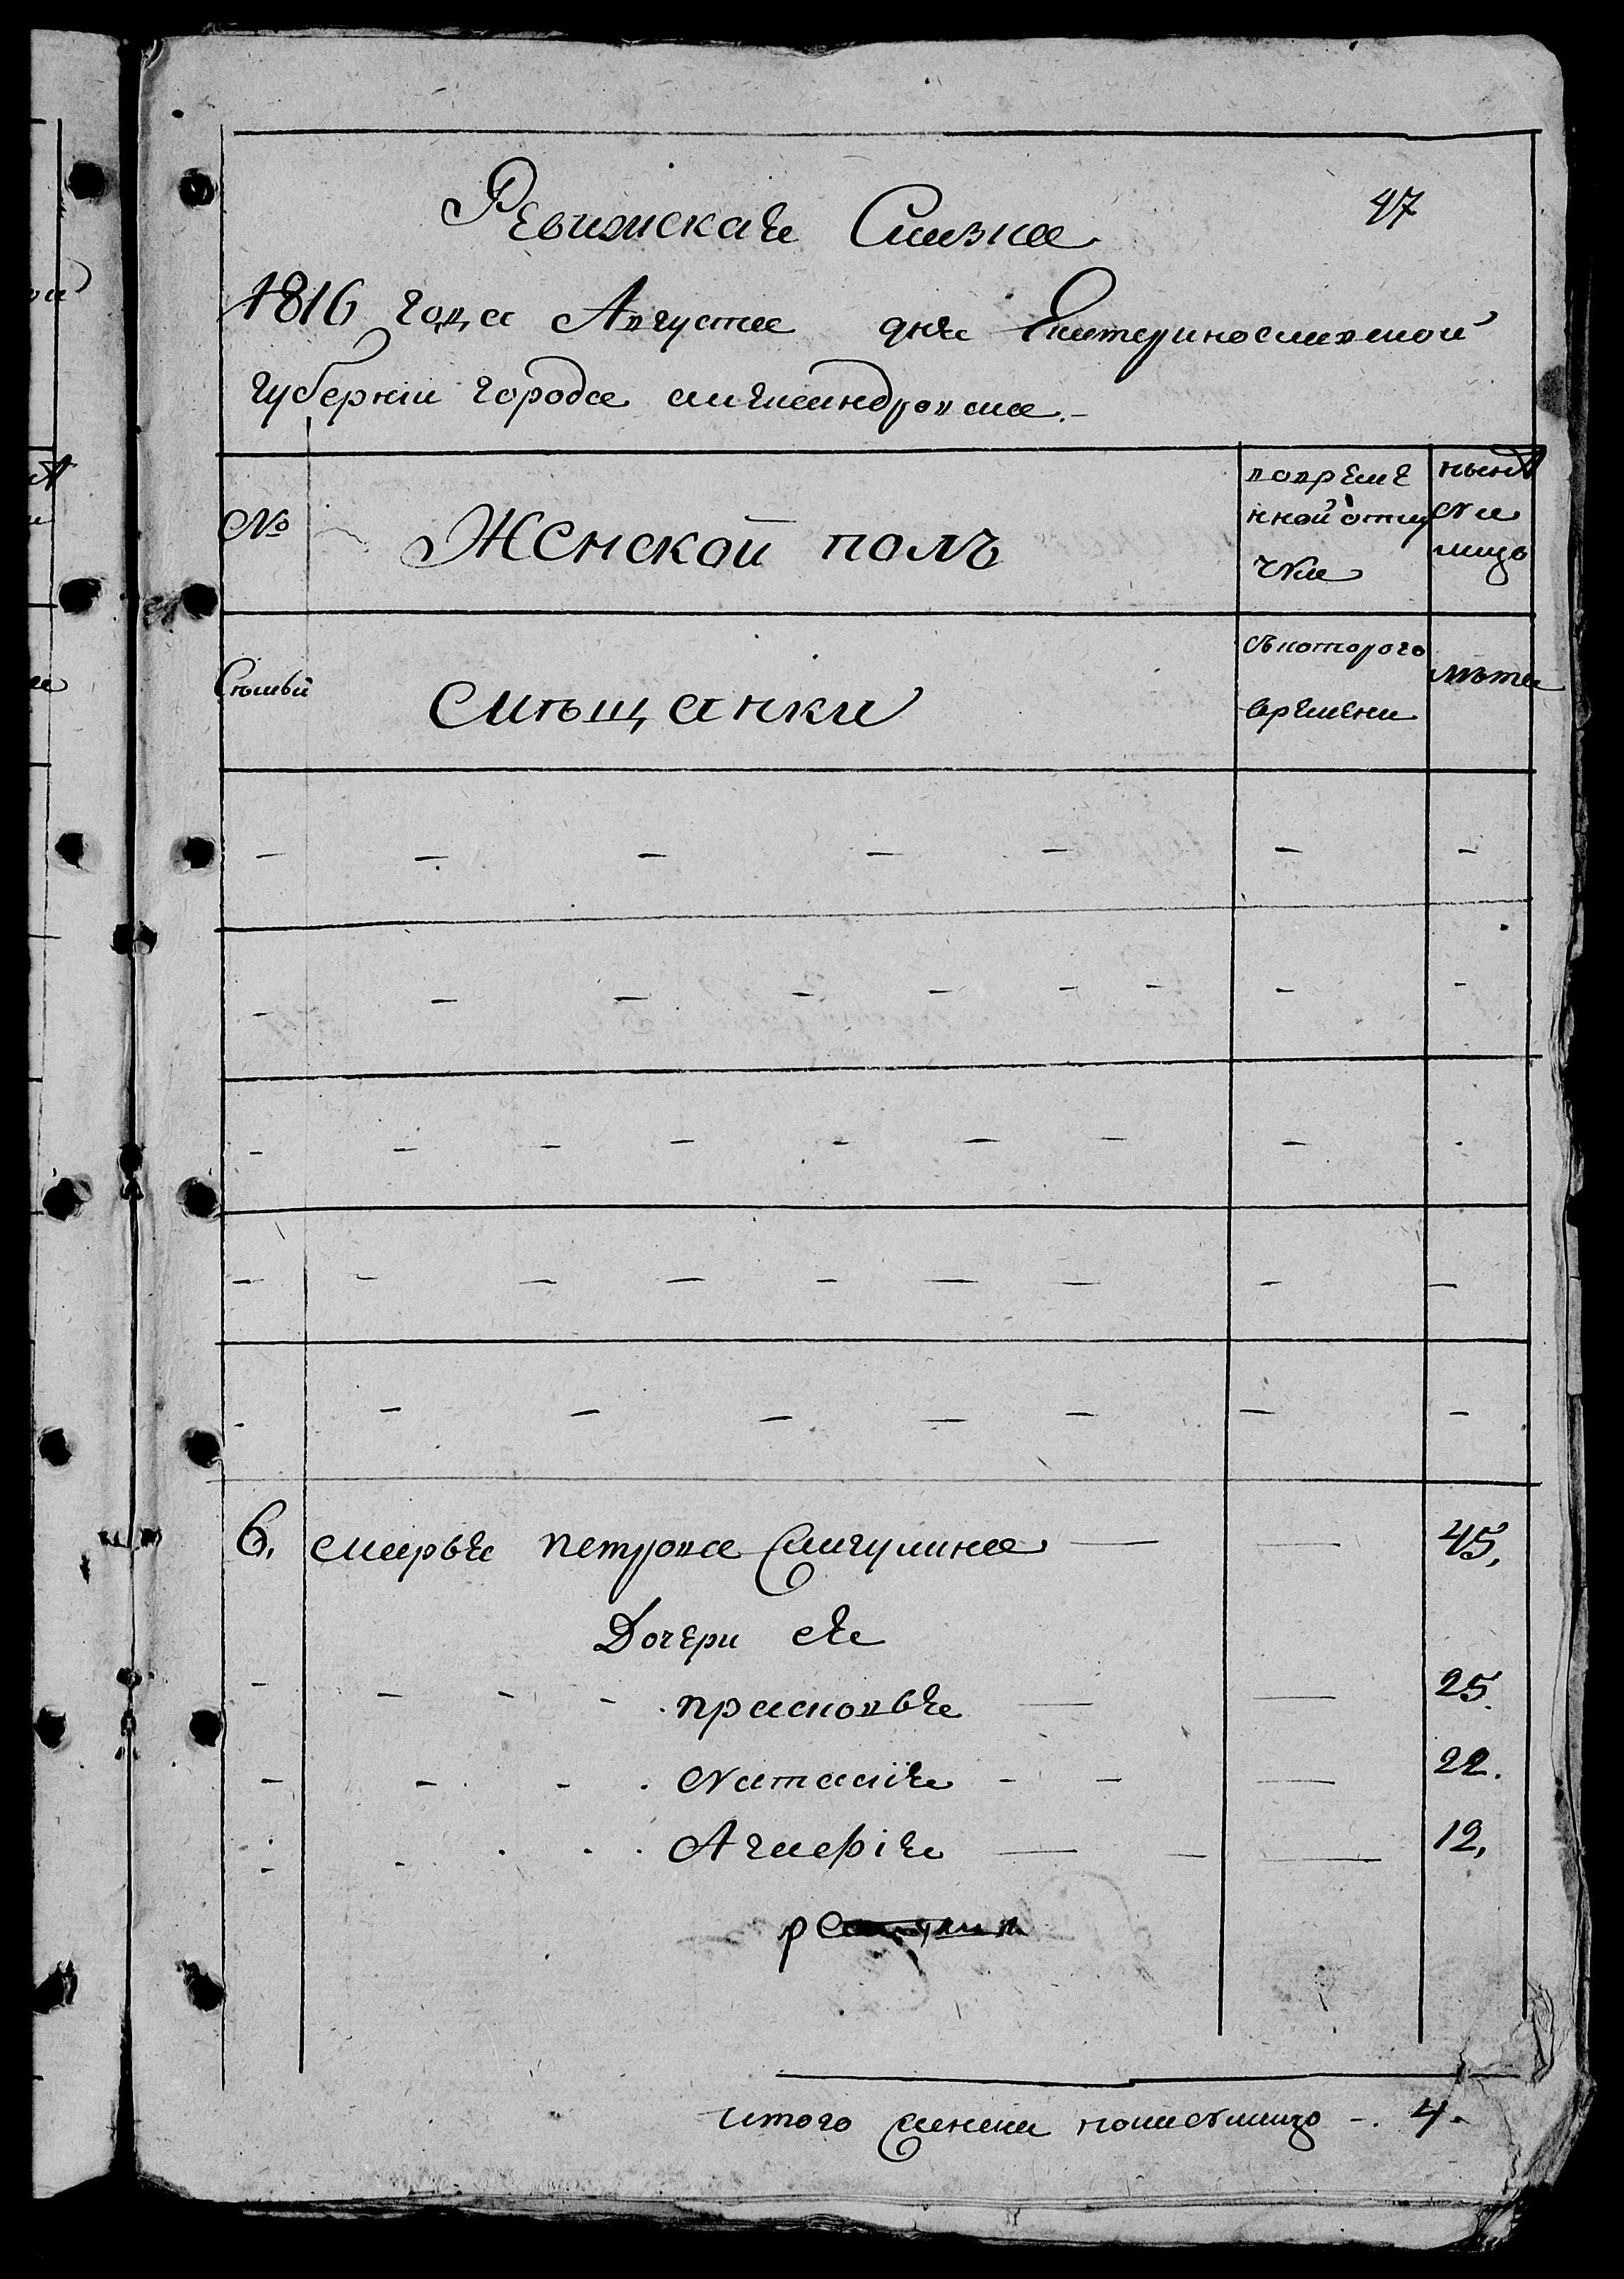 47
Ревижская Сказка
1816 года Августа дня Екатеринославской
губернии города александровска.
№ Женской полъ
повреме
нной отлу
чке
нынѣ
на
лицо
Семьи
Мѣщанки
съ которого
времени
лѣта
6. Марья петрова 45.
Дочери ея
прасковья 25.
Наталія 22.
Агафія 12.
итого женска полу на лицо 4.